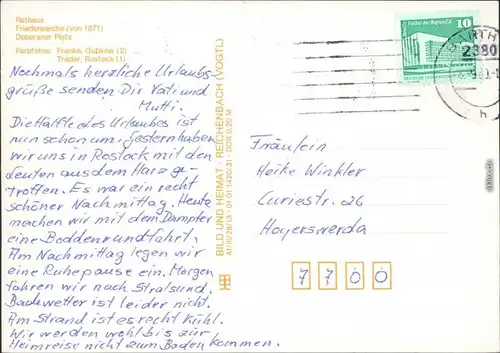 Rathaus
Friedenseiche (von 1871)
Doberaner Platz
Farbfotos: Franke, Gützkow (2)
Trader, Rostock (1)
Nochmals herzliche Urlaubs-
grüße senden Dir Vati und
Mutti.
Die Hälfte des Urlaubes ist
nun schon um. Gestern haben
wir uns in Rostock mit den
Leuten aus dem Harz ge-
troffen. Es war ein recht
schöner Nachmittag. Heute
machen wir mit dem Dampfer
eine Boddenrundfahrt.
Am Nachmittag legen wir
eine Ruhepause ein. Morgen
fahren wir nach Stralsund.
Badewetter ist leider nicht.
Am Strand ist es recht kühl.
Wir werden wohl bis zur
Heimreise nicht zum Baden kommen.
BILD UND HEIMAT · REICHENBACH (VOGTL)
01 01 DDR 0,20 M
10
BARTH
2380
h
Fräulein
Heike Winkler
Curiestr. 26
Hoyerswerda
7 7 0 0